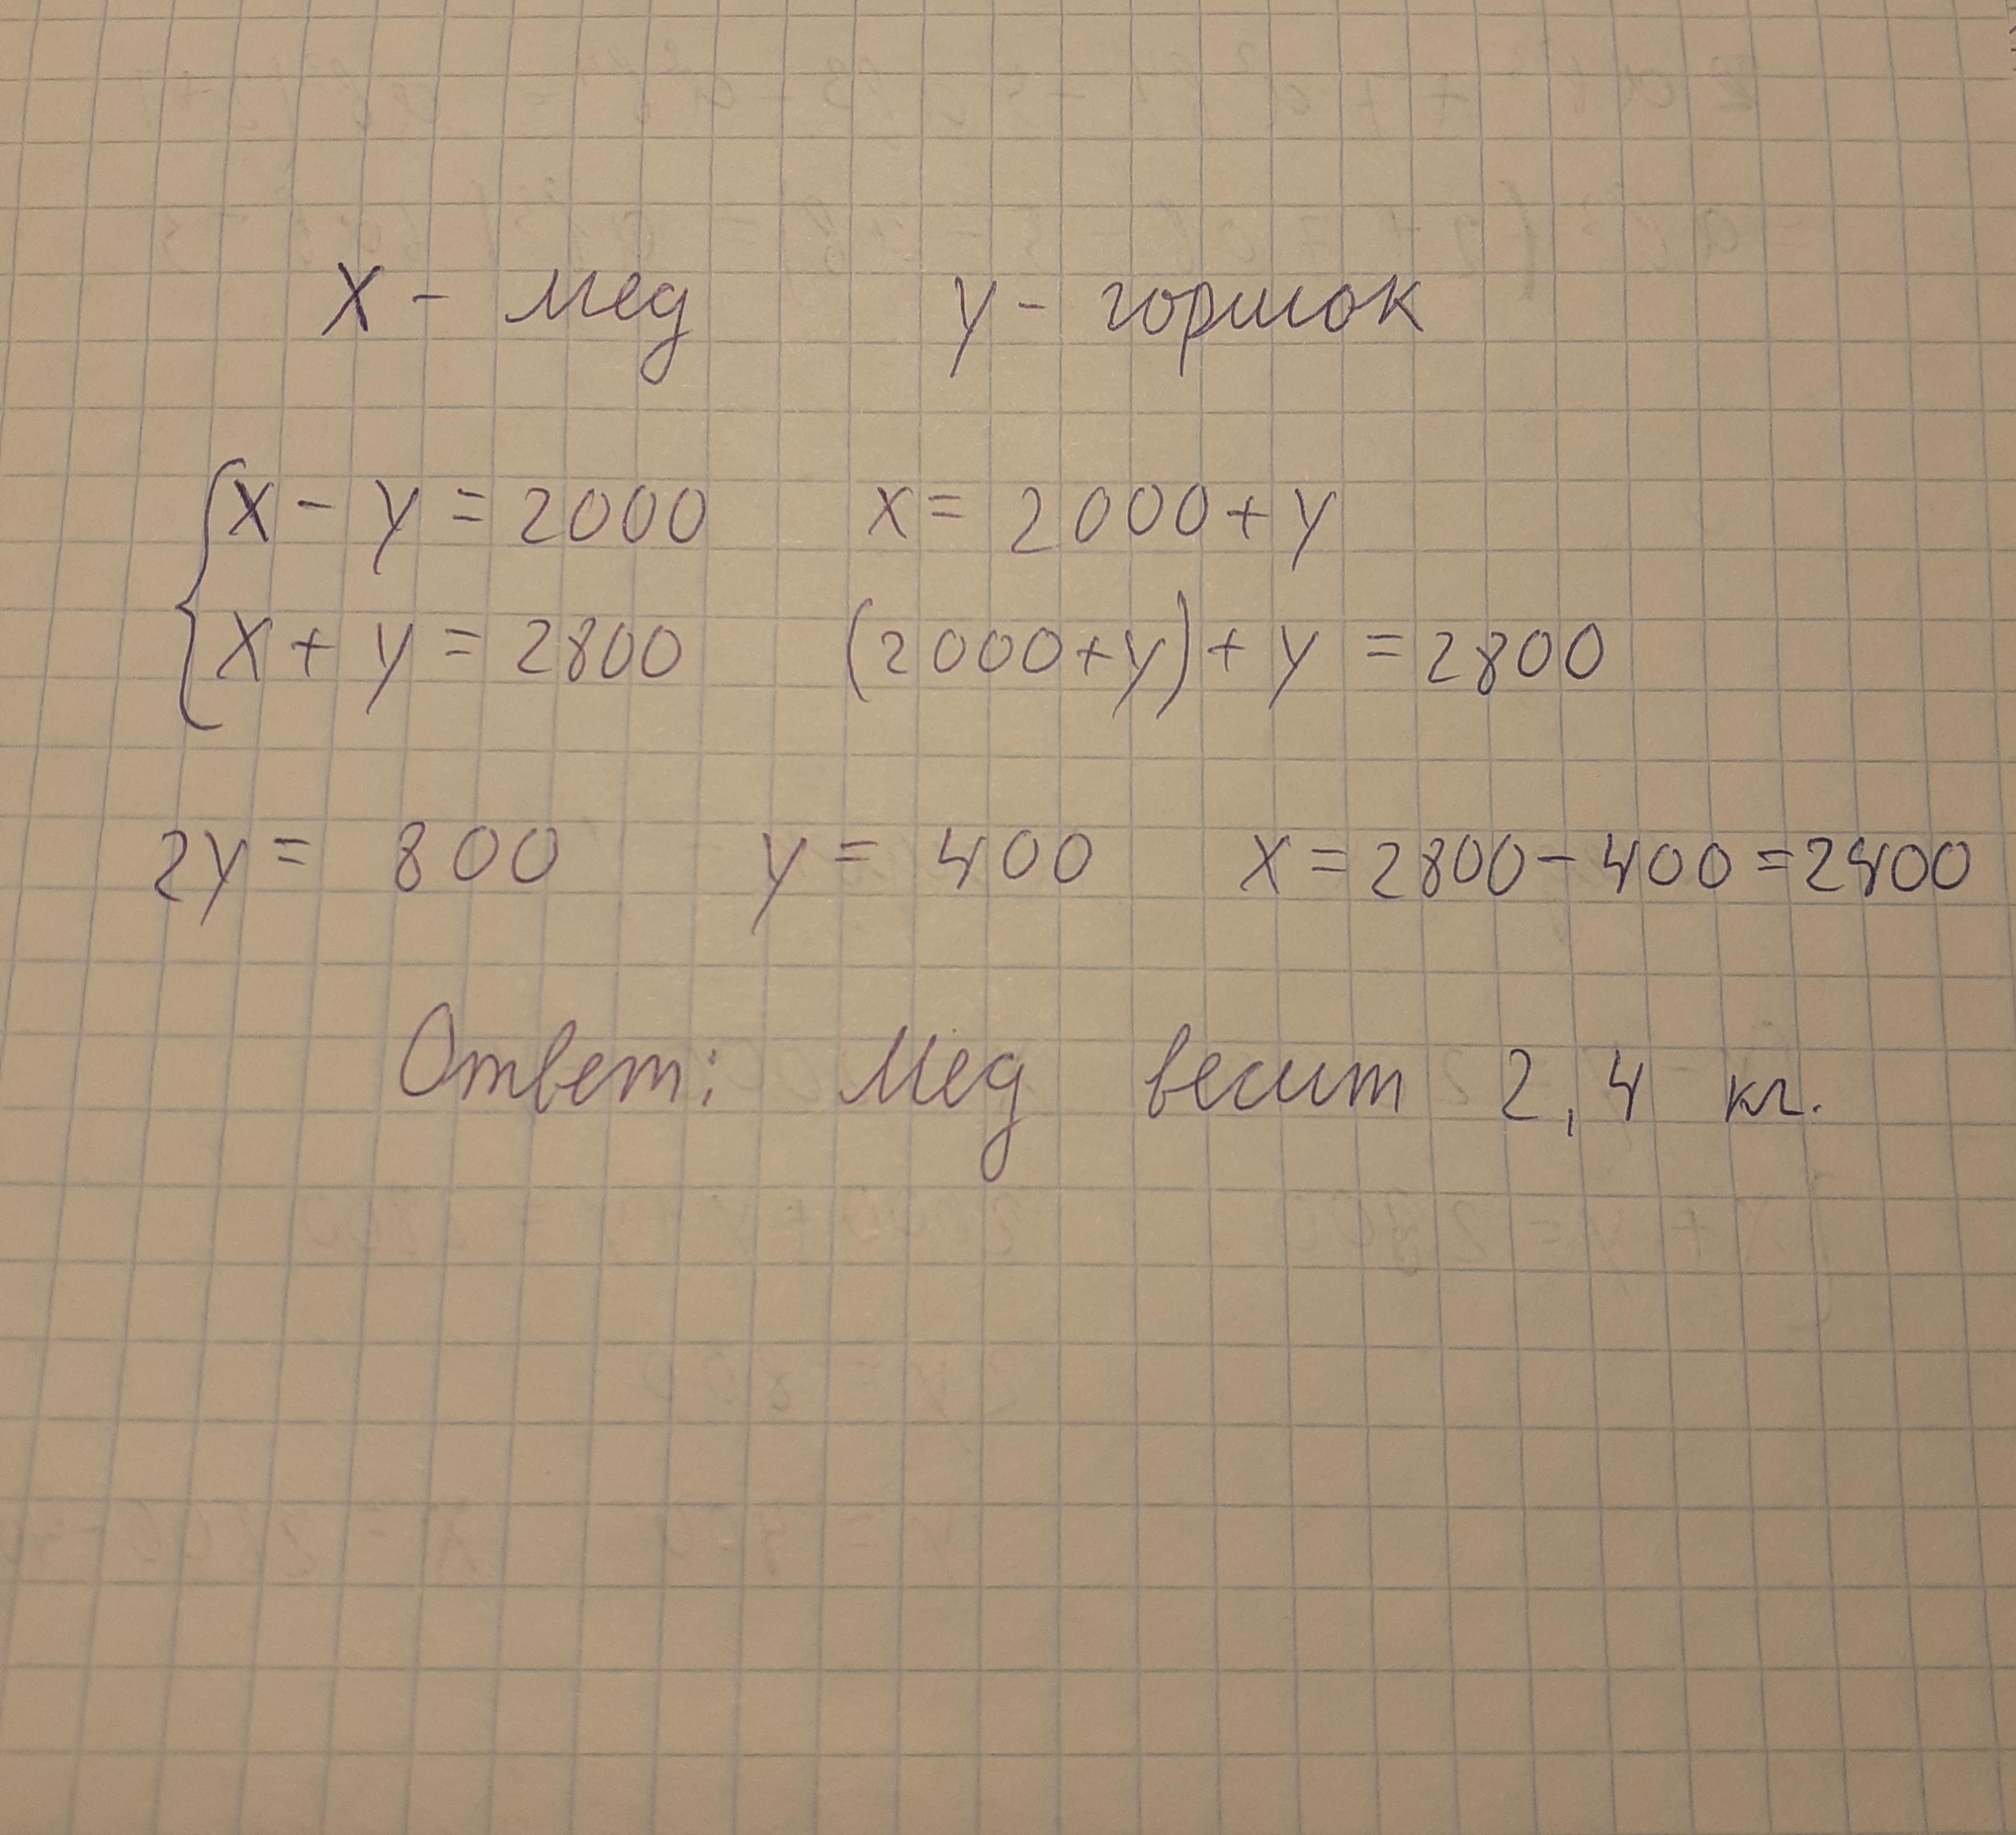 x - мед y - горшок
x - y = 2000 x = 2000 + y
x + y = 2800 (2000 + y) + y = 2800
2y = 800 y = 400 x = 2800 - 400 = 2400
Ответ: Мед весит 2,4 кг.